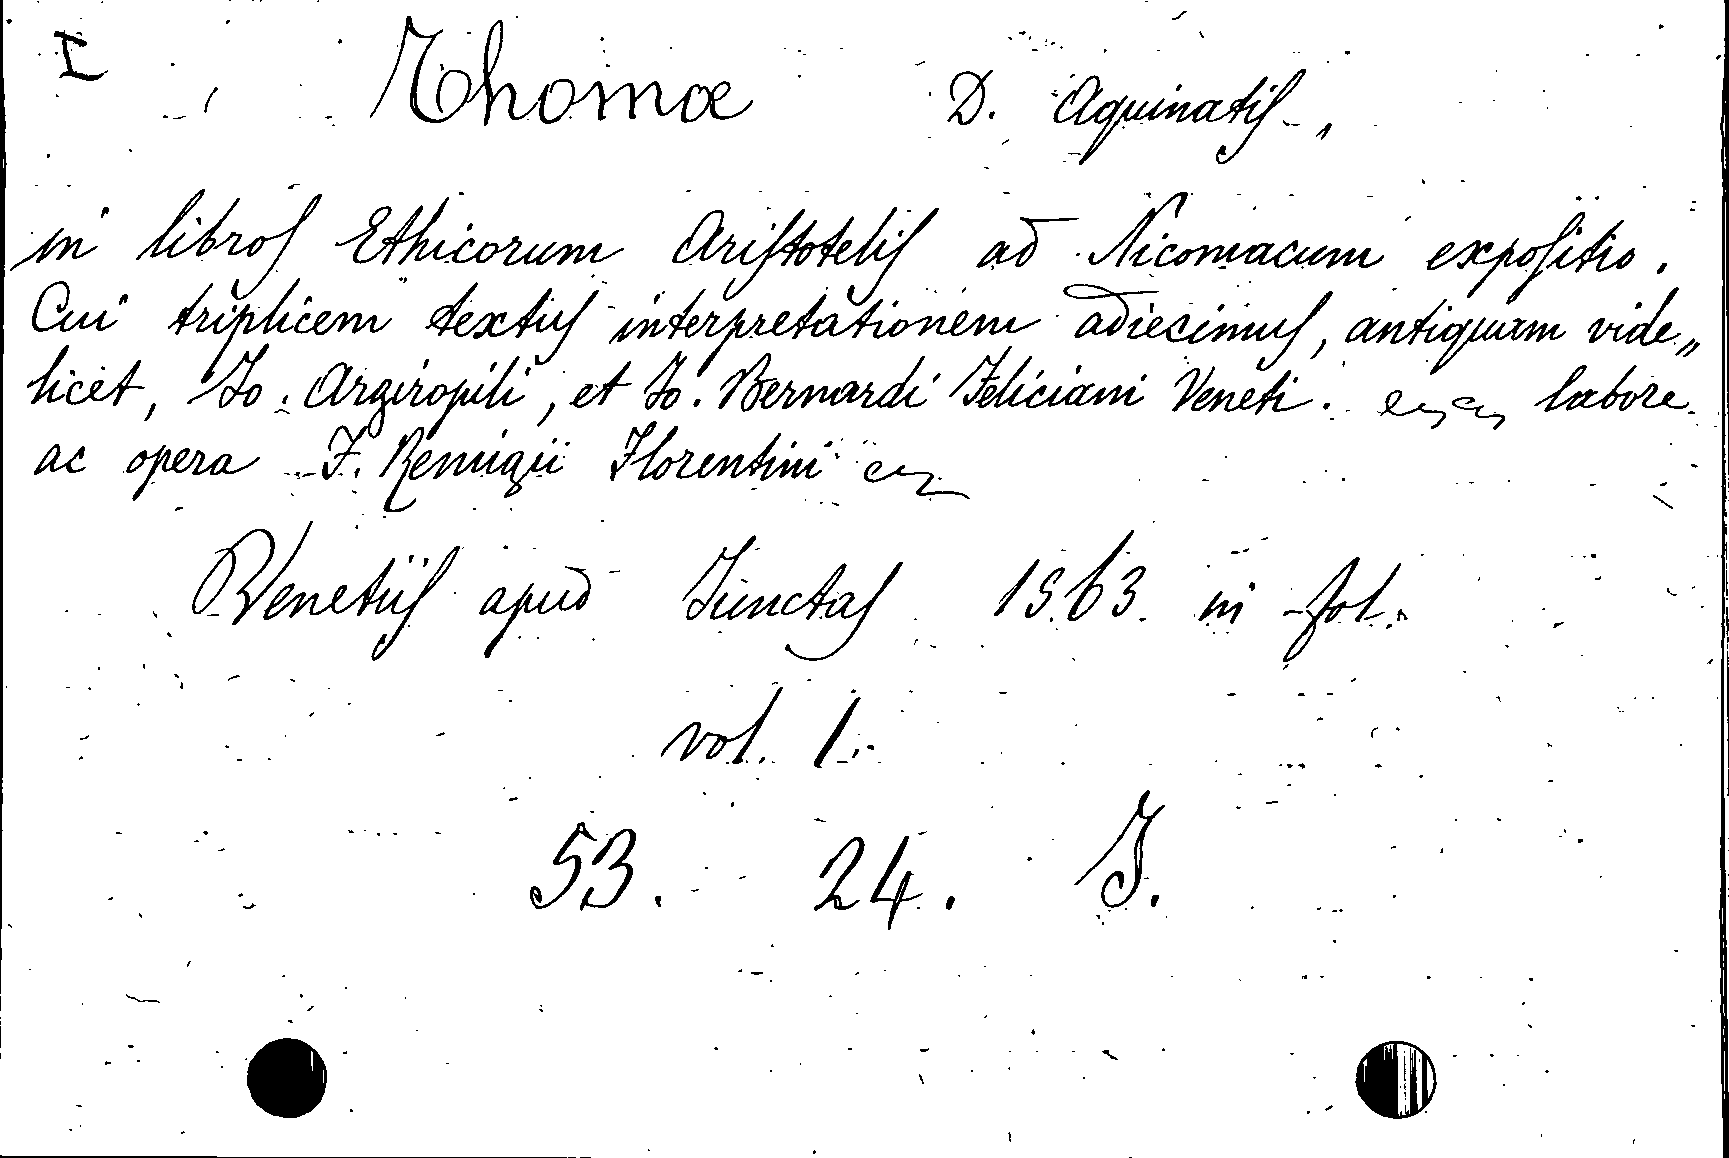 I Thomæ D. Aquinatis,
in libros Ethicorum Aristotelis ad Nicomacum expositio.
Cui triplicem textus interpretationem adiecimus, antiquam vide„
licet, Jo. Argiropili, et Jo. Bernardi Feliciani Veneti. labore
ac opera F. Remigii Florentini
Venetiis apud Junctas 1563. in fol.
vol. 1.
53. 24. J.